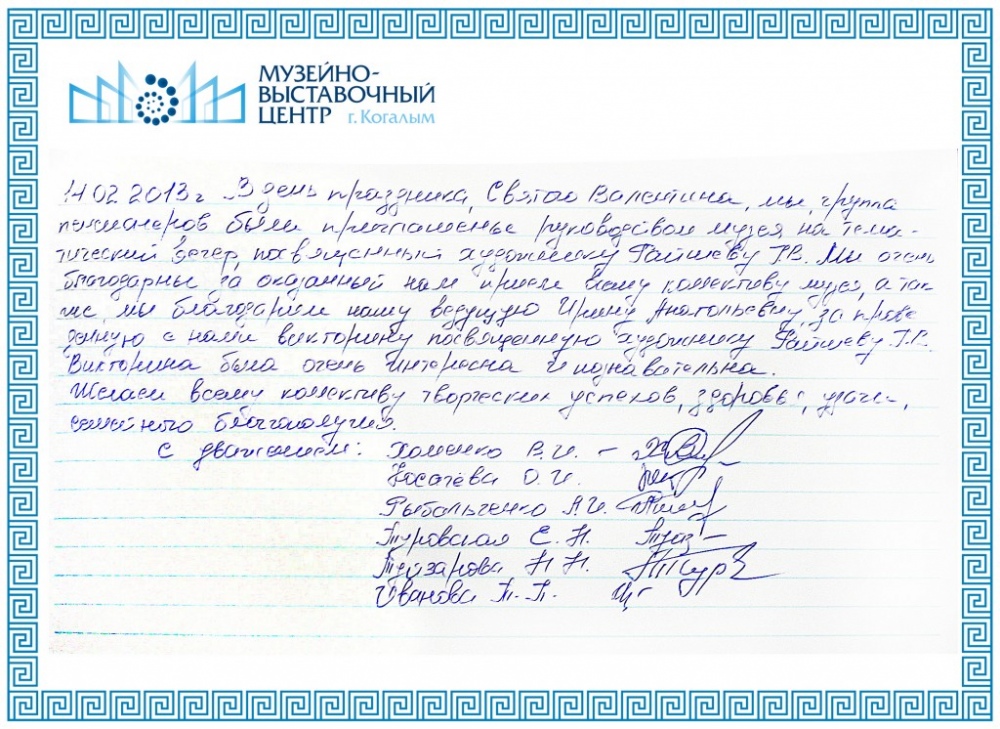 МУЗЕЙНО-
ВЫСТАВОЧНЫЙ
ЦЕНТР г. Когалым
14 02 2013 г В день праздника, Святого Валентина, мы, группа
пенсионеров были приглашены руководством музея на тема-
тический вечер, посвященный художнику Райшеву Г.В. Мы очень
благодарны за оказанный нам прием всему коллективу музея, а так-
же, мы благодарим нашу ведущую Ирину Анатольевну, за прове
денную с нами викторину посвященную художнику Райшеву Г.В.
Викторина была очень интересна и познавательна.
Желаем всему коллективу творческих успехов, здоровья, удачи,
семейного благополучия.
С уважением: Хоменко В.И. –
Носачёва О.И.
Рыбальченко А.И.
Туровская Е.Н.
Н.Н.
Иванова Т.П.